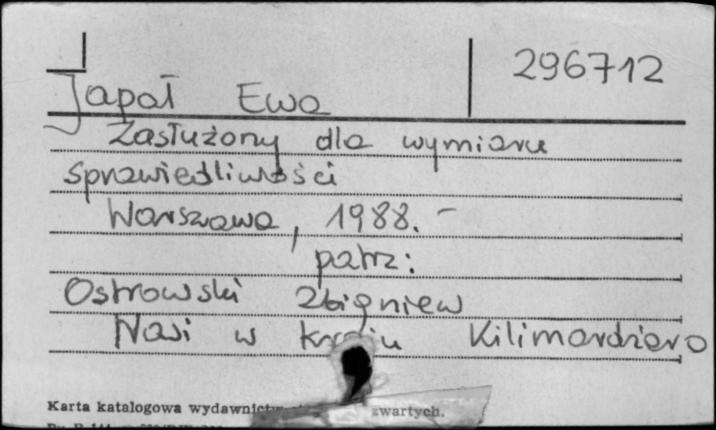 296712
Japał Ewa
Zasłużony dla wymiaru
sprawiedliwości
Warszawa, 1988. -
patrz:
Ostrowski Zbigniew
Nasi w kraju Kilimandżaro
Karta katalogowa wydawnictw zwartych.